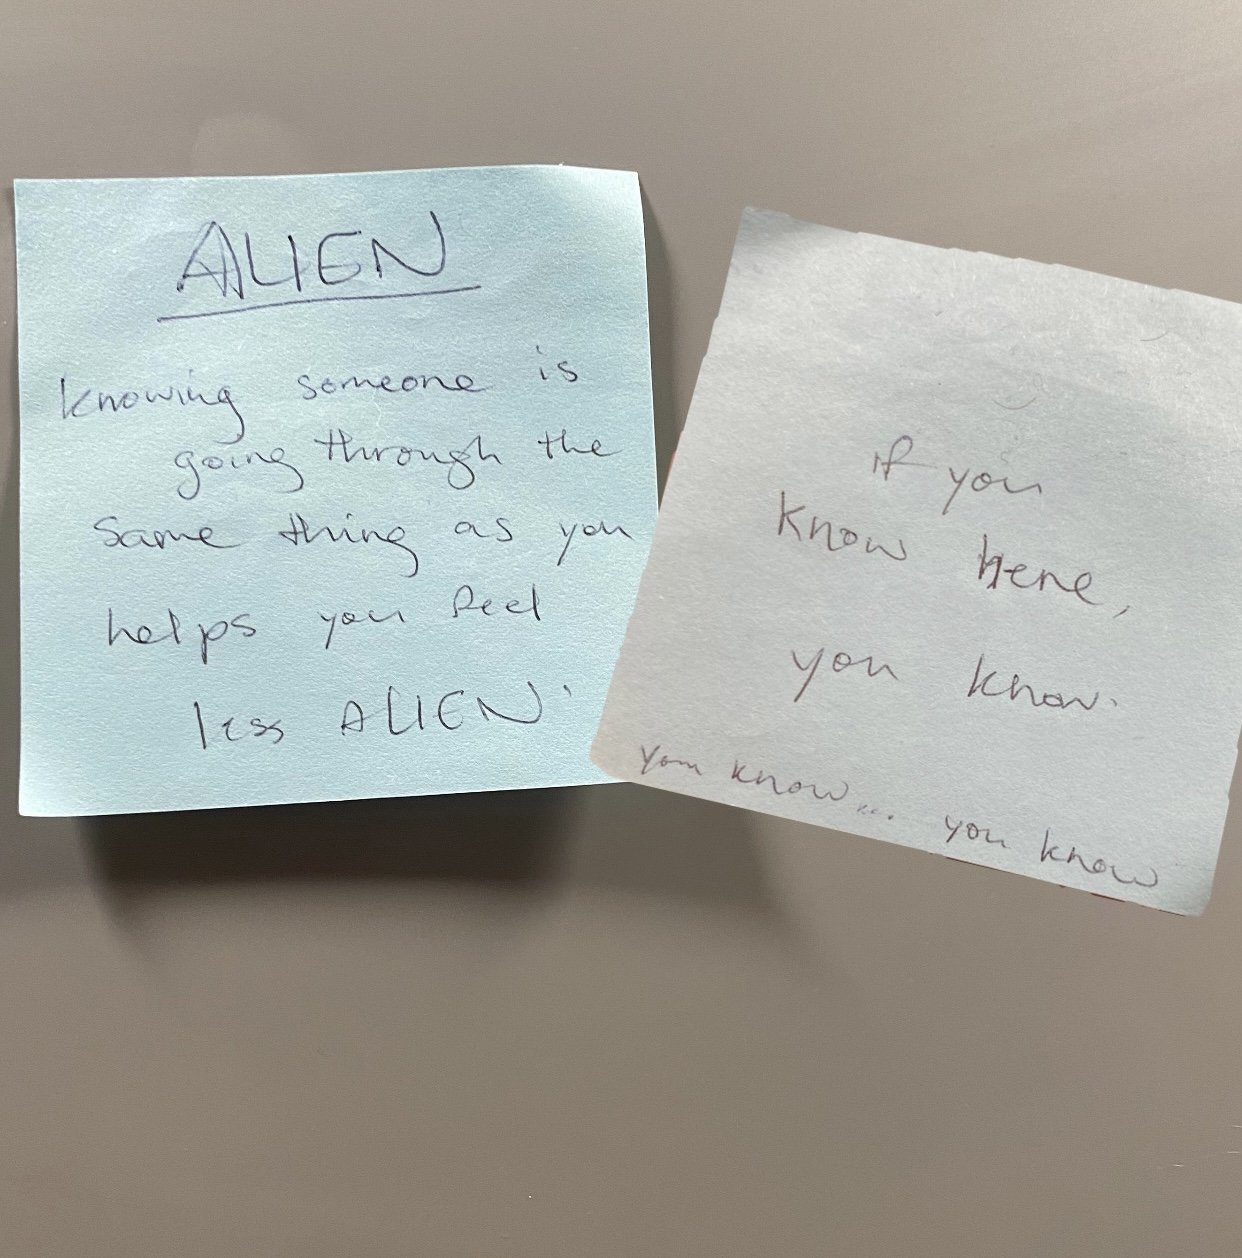 ALIEN
knowing someone is
going through the
same thing as you
helps you feel
less ALIEN.
if you
know here,
you know.
you know... you know